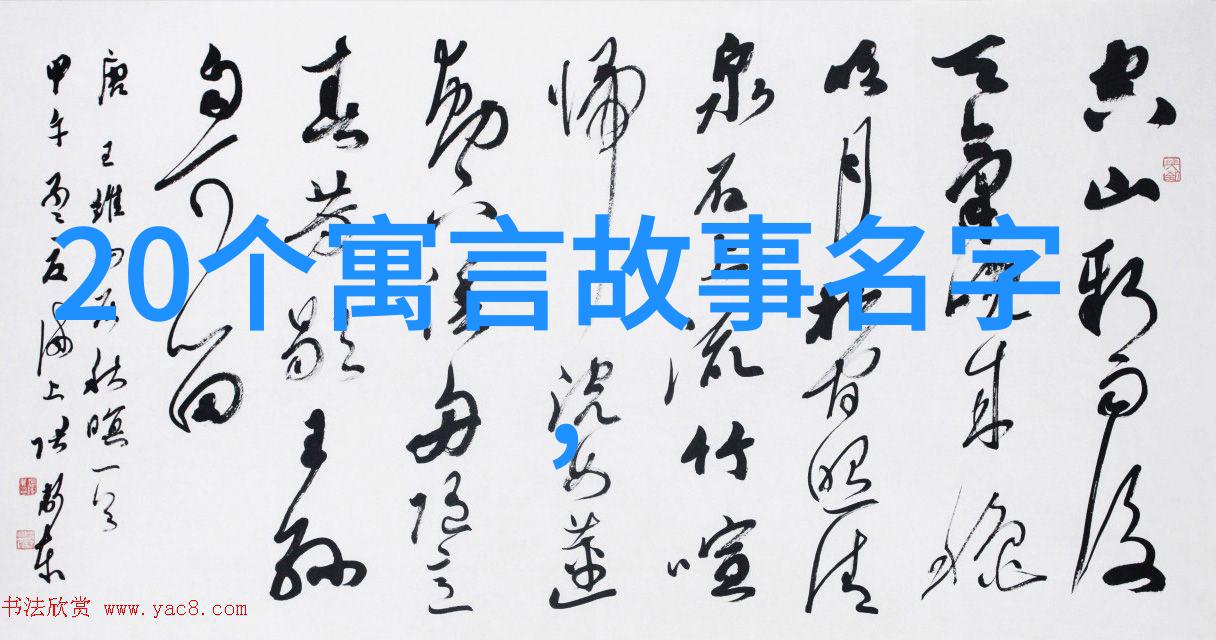 空山新雨后
天氣晚来秋
明月松间照清
泉石上流竹喧
帰浣女莲
動下漁舟随意
春芳歇王孙
自可留
唐王維山居秋暝一首
甲午海上张东
20个寓言故事名字
,
书法欣赏 www.yac8.com